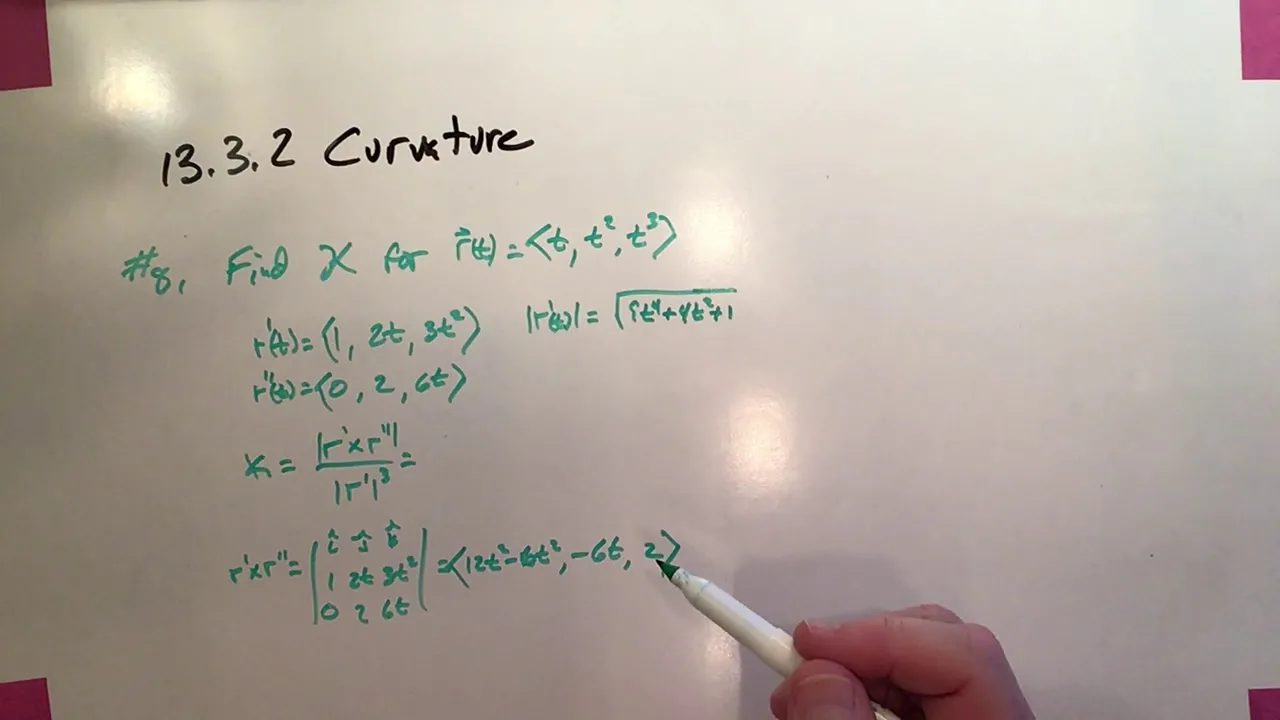 13.3.2 Curvature
#8. Find K for r⃗(t) = ⟨t, t², t³⟩
r'(t) = ⟨1, 2t, 3t²⟩ |r'(t)| = √(9t⁴+4t²+1
r''(t) = ⟨0, 2, 6t⟩
K = |r'×r''| / |r'|³ =
r'×r'' = | î ĵ k̂
1 2t 3t²
0 2 6t | = ⟨12t²-6t², -6t, 2⟩